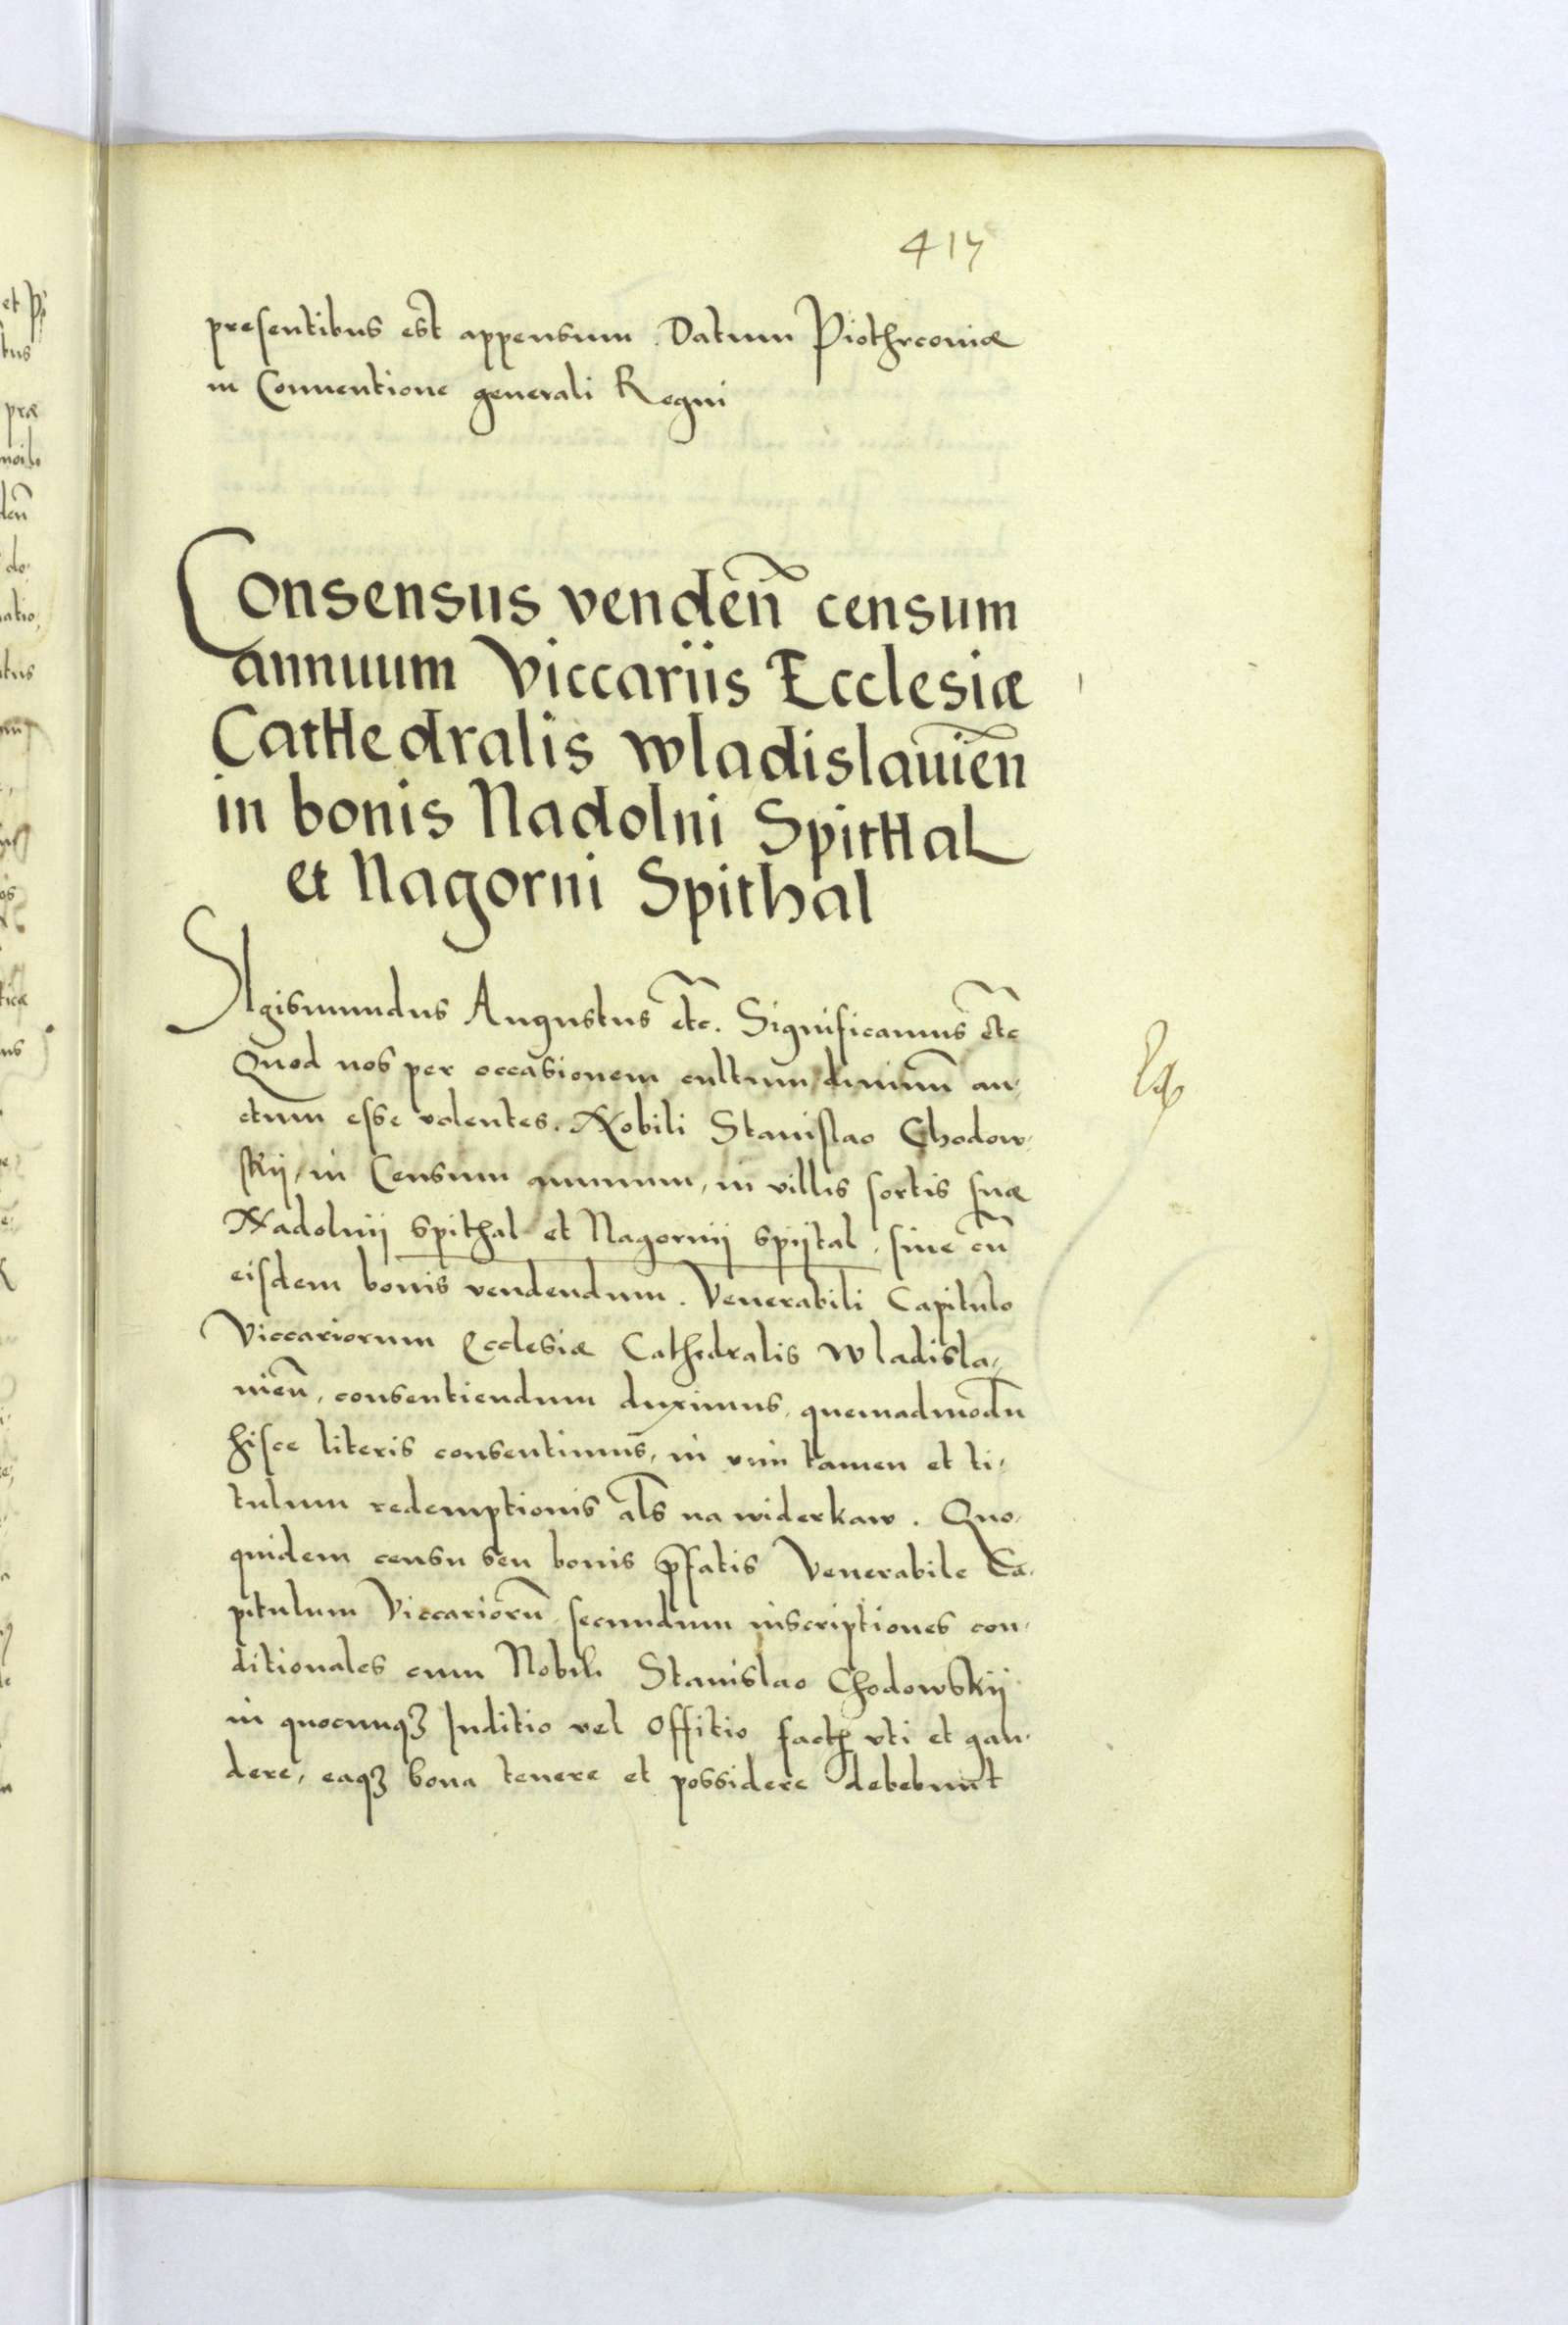 417
presentibus est appensum. Datum Piothrconiæ
in Conuentione generali Regni
Consensus venden̄ censum
annuum Viccariis Ecclesiæ
Cathedralis wladislauien̄
in bonis Nadolni Spithal
et Nagorni Spithal
Sigismundus Augustus etc. Significamus etc
Quod nos per occasionem cultum diuinū au-
ctum esse volentes. Nobili Stanislao Chodow-
skij, in Censum annuum, in villis sortis suæ
Nadolnij spithal et Nagornij spijtal, siue cū
eisdem bonis vendendum. Venerabili Capitulo
Viccariorum Ecclesiæ Cathedralis Wladisla-
uien̄, consentiendum duximus, quemadmodū
hisce literis consentimus, in vim tamen et ti-
tulum redemptionis als na widerkaw. Quo-
quidem censu seu bonis p̄fatis Venerabile Ca-
pitulum Viccariorū secundum inscriptiones con-
ditionales cum Nobili Stanislao Chodowskij
in quocunqʒ Iuditio vel Offitio fact vti et gau-
dere, eaqʒ bona tenere et possidere debebunt